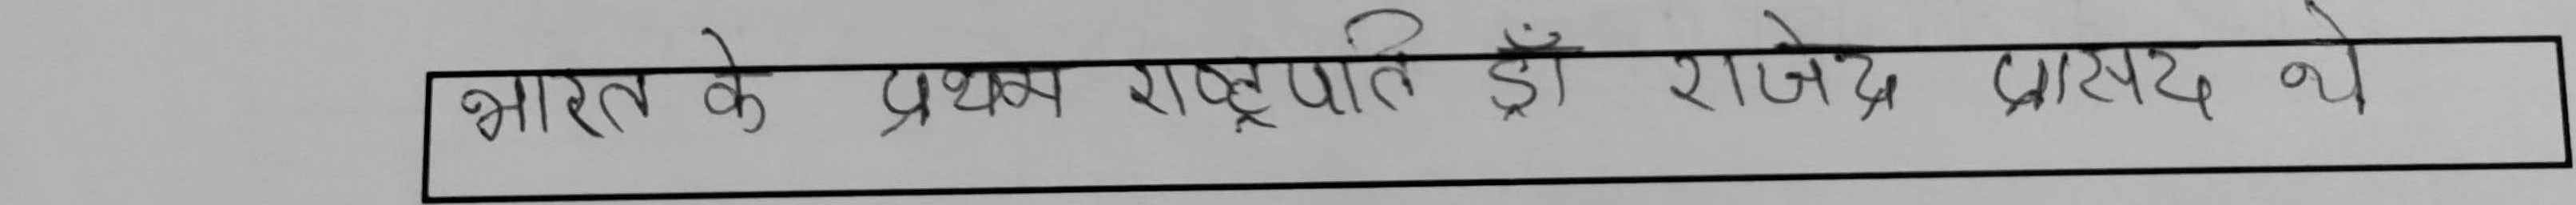 भारत के प्रथम राष्ट्रपति डॉ राजेद्र प्रासद थे